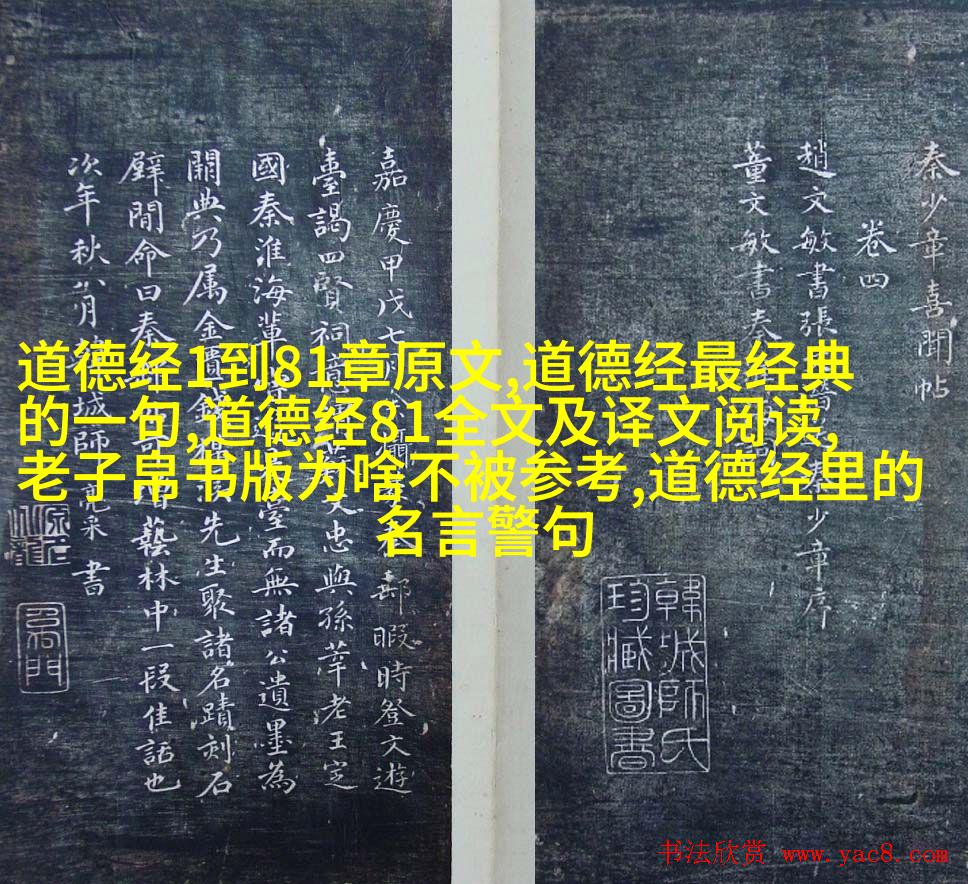 道德经1到81章原文,道德经最经典
的一句,道德经81全文及译文阅读,
老子帛书版为啥不被参考,道德经里的
名言警句
秦少章喜聞帖
卷四
趙文敏書張 秦少章序
董文敏書秦
韓城師氏
珍藏圖書
嘉慶甲戊七 郵暇時登文遊
臺謁四賢祠 文忠與孫莘老王定
國秦淮海輩 臺而無諸公遺墨為
闕典乃属金匱錢 先生聚諸名蹟刻石
壁間命曰秦 藝林中一段佳話也
次年秋八月 城師亮采書
书法欣赏 www.yac8.com